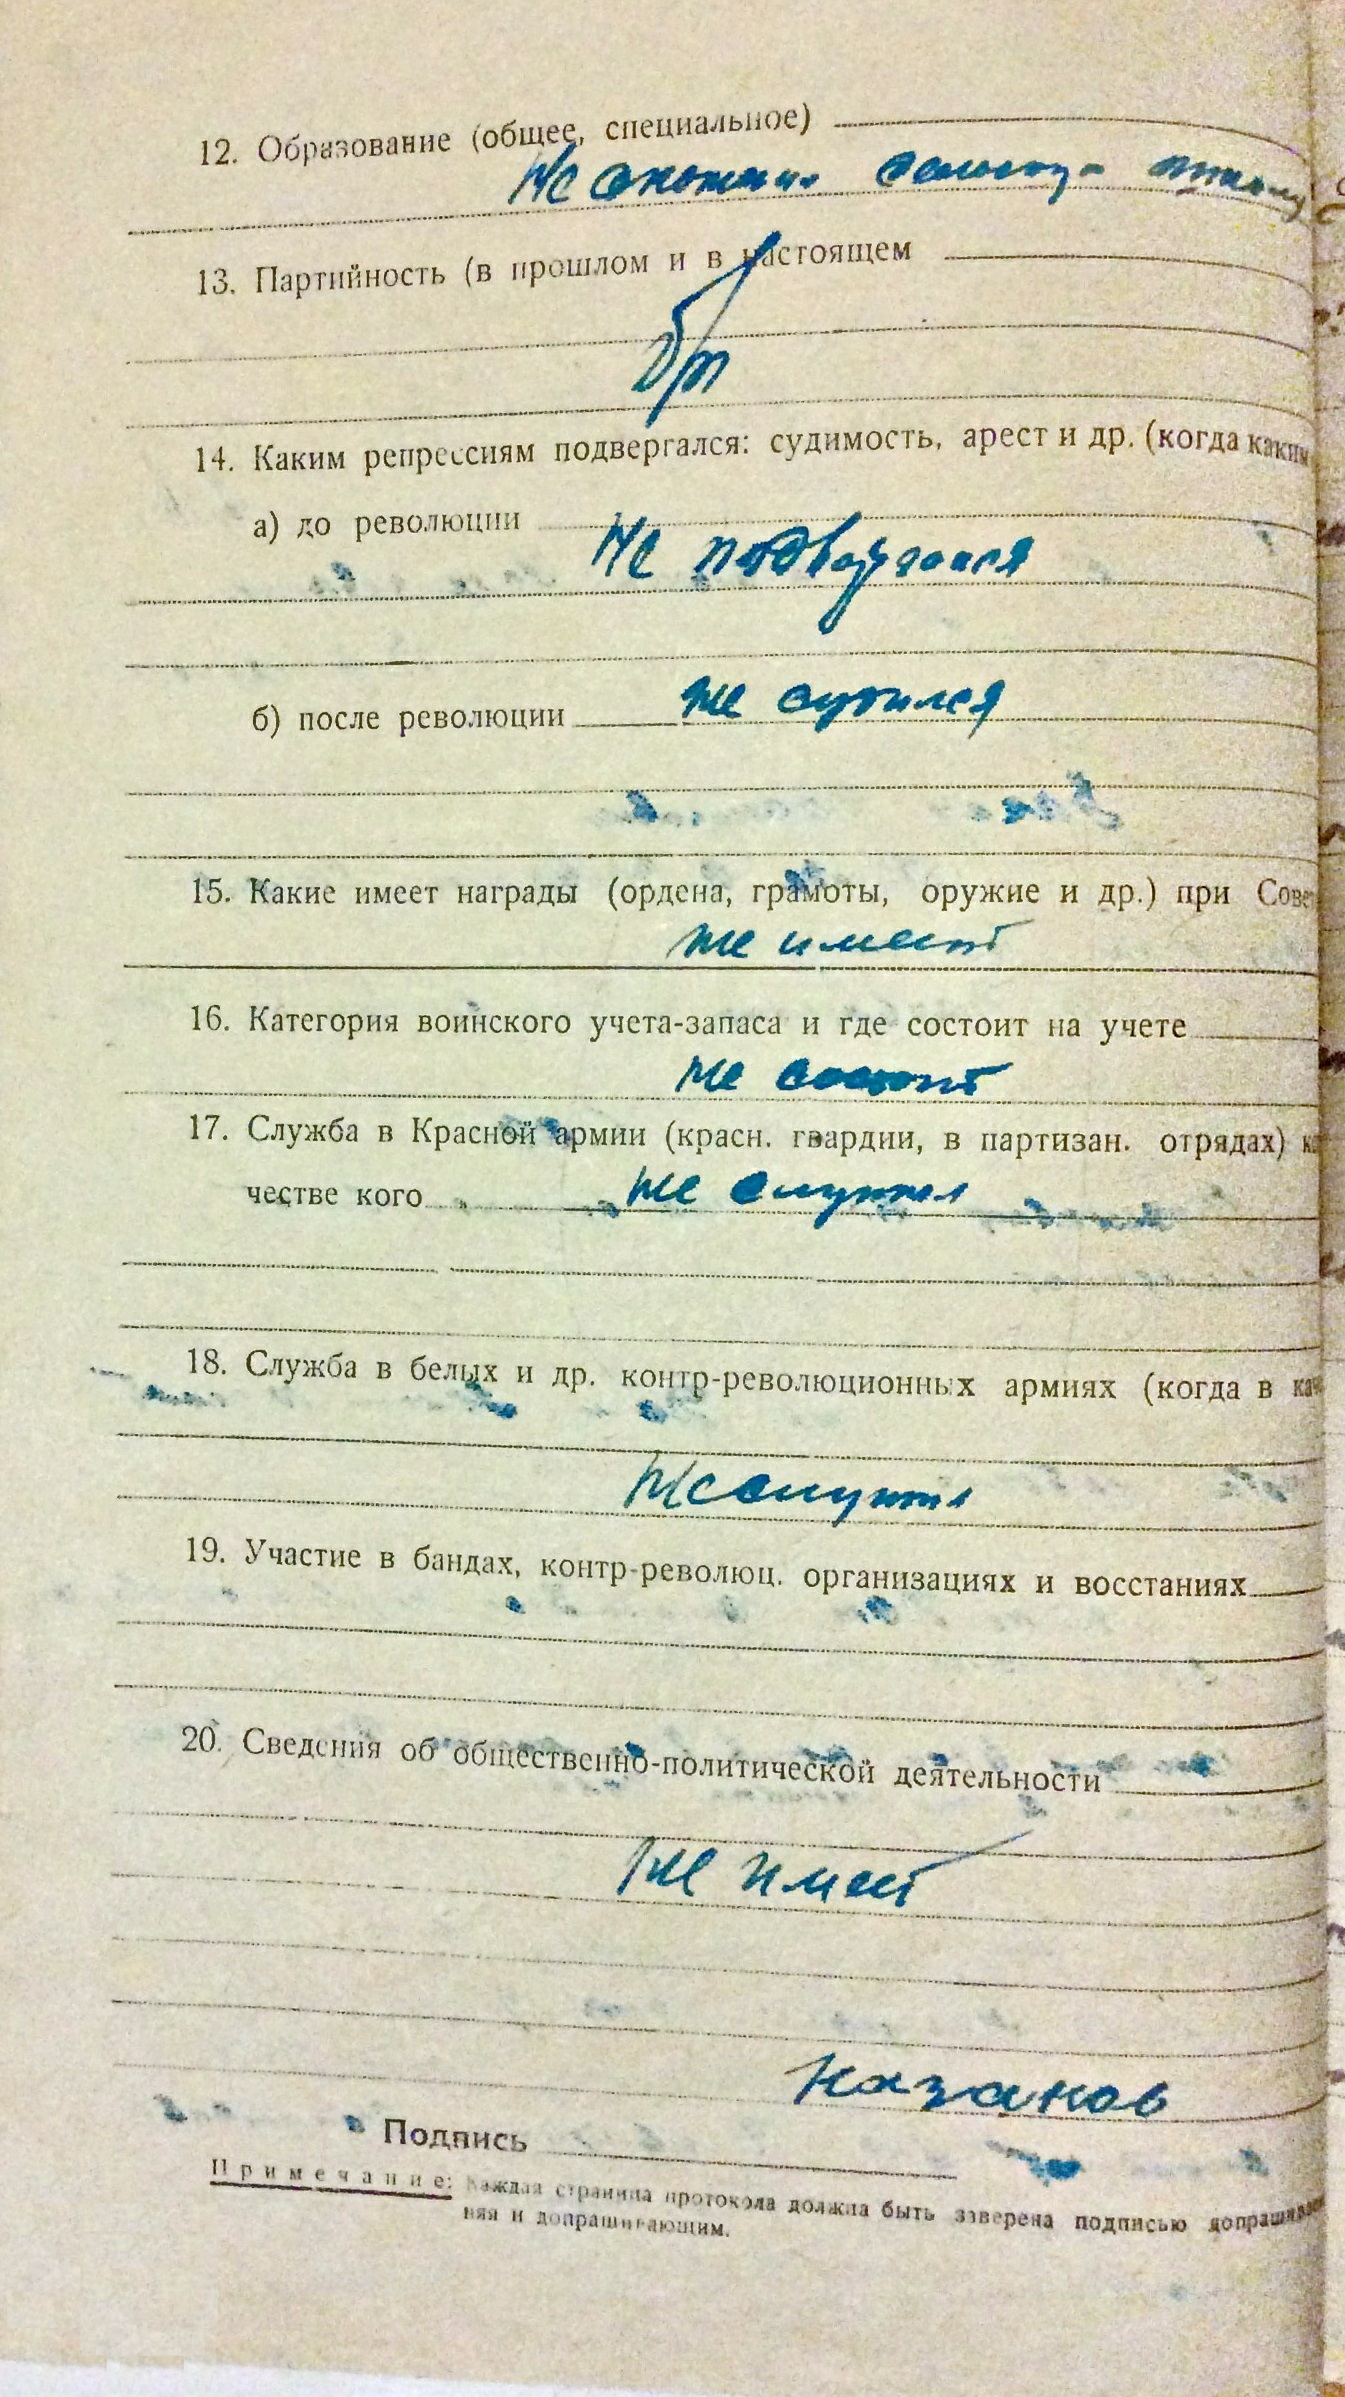 12. Образование (общее, специальное)
Не окончил сельскую школу
13. Партийность (в прошлом и в настоящем
б/п
14. Каким репрессиям подвергался: судимость, арест и др. (когда каким
а) до революции
Не подвергался
б) после революции не судился
15. Какие имеет награды (ордена, грамоты, оружие и др.) при Сове
не имеет
16. Категория воинского учета-запаса и где состоит на учете
не состоит
17. Служба в Красной армии (красн. гвардии, в партизан. отрядах) ка
честве кого не служил
18. Служба в белых и др. контр-революционных армиях (когда в кач
Не служил
19. Участие в бандах, контр-революц. организациях и восстаниях
20. Сведения об общественно-политической деятельности
Не имеет
Казаков
Подпись
Примечание: Каждая страница протокола должна быть заверена подписью допрашивае
няя и допрашивающим.